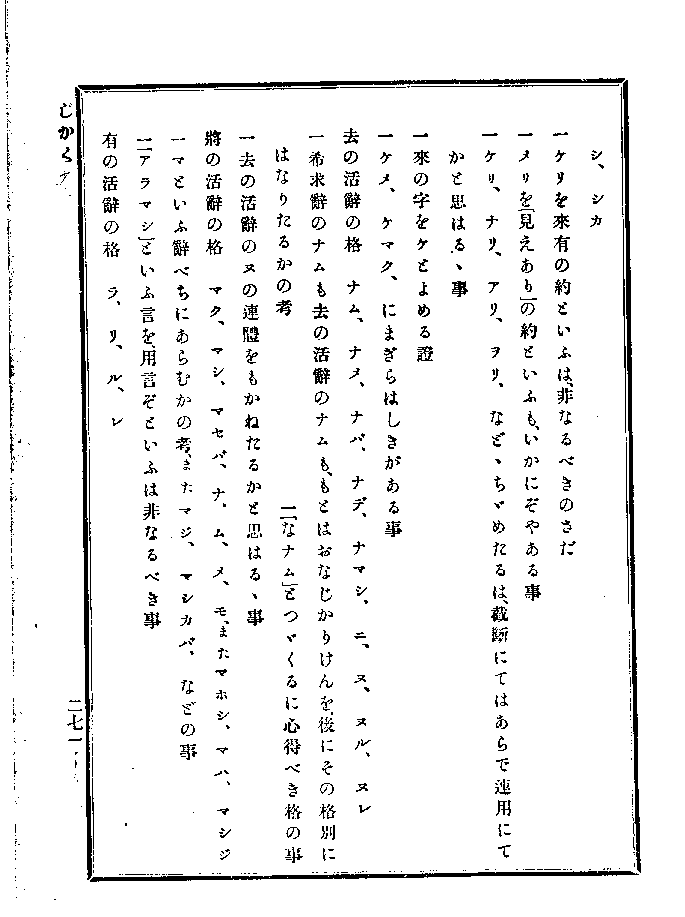 シ、シカ
一ケリを來有の約といふは、非なるべきのさだ
一メリを「見えあり」の約といふも、いかにぞやある事
一ケリ、ナリ、アリ、ヲリ、など、ちゞめたるは、截斷にてはあらで連用にて
かと思はるゝ事
一來の字をケとよめる證
一ケメ、ケマク、にまぎらはしきがある事
去の活辭の格　ナム、ナメ、ナバ、ナデ、ナマシ、ニ、ヌ、ヌル、ヌレ
一希求辭のナムも去の活辭のナムも、もとはおなじかりけんを、後にその格別に
はなりたるかの考　一「なナム」とつゞくるに心得べき格の事
一去の活辭のヌの連體をもかねたるかと思はるゝ事
將の活辭の格　マク、マシ、マセバ、ナ、ム、メ、モ、またマホシ、マハ、マシジ
一マといふ辭べちにあらむかの考、またマジ、マシカバ、などの事
一「アラマシ」といふ言を、用言ぞといふは非なるべき事
有の活辭の格　ラ、リ、ル、レ
二七一